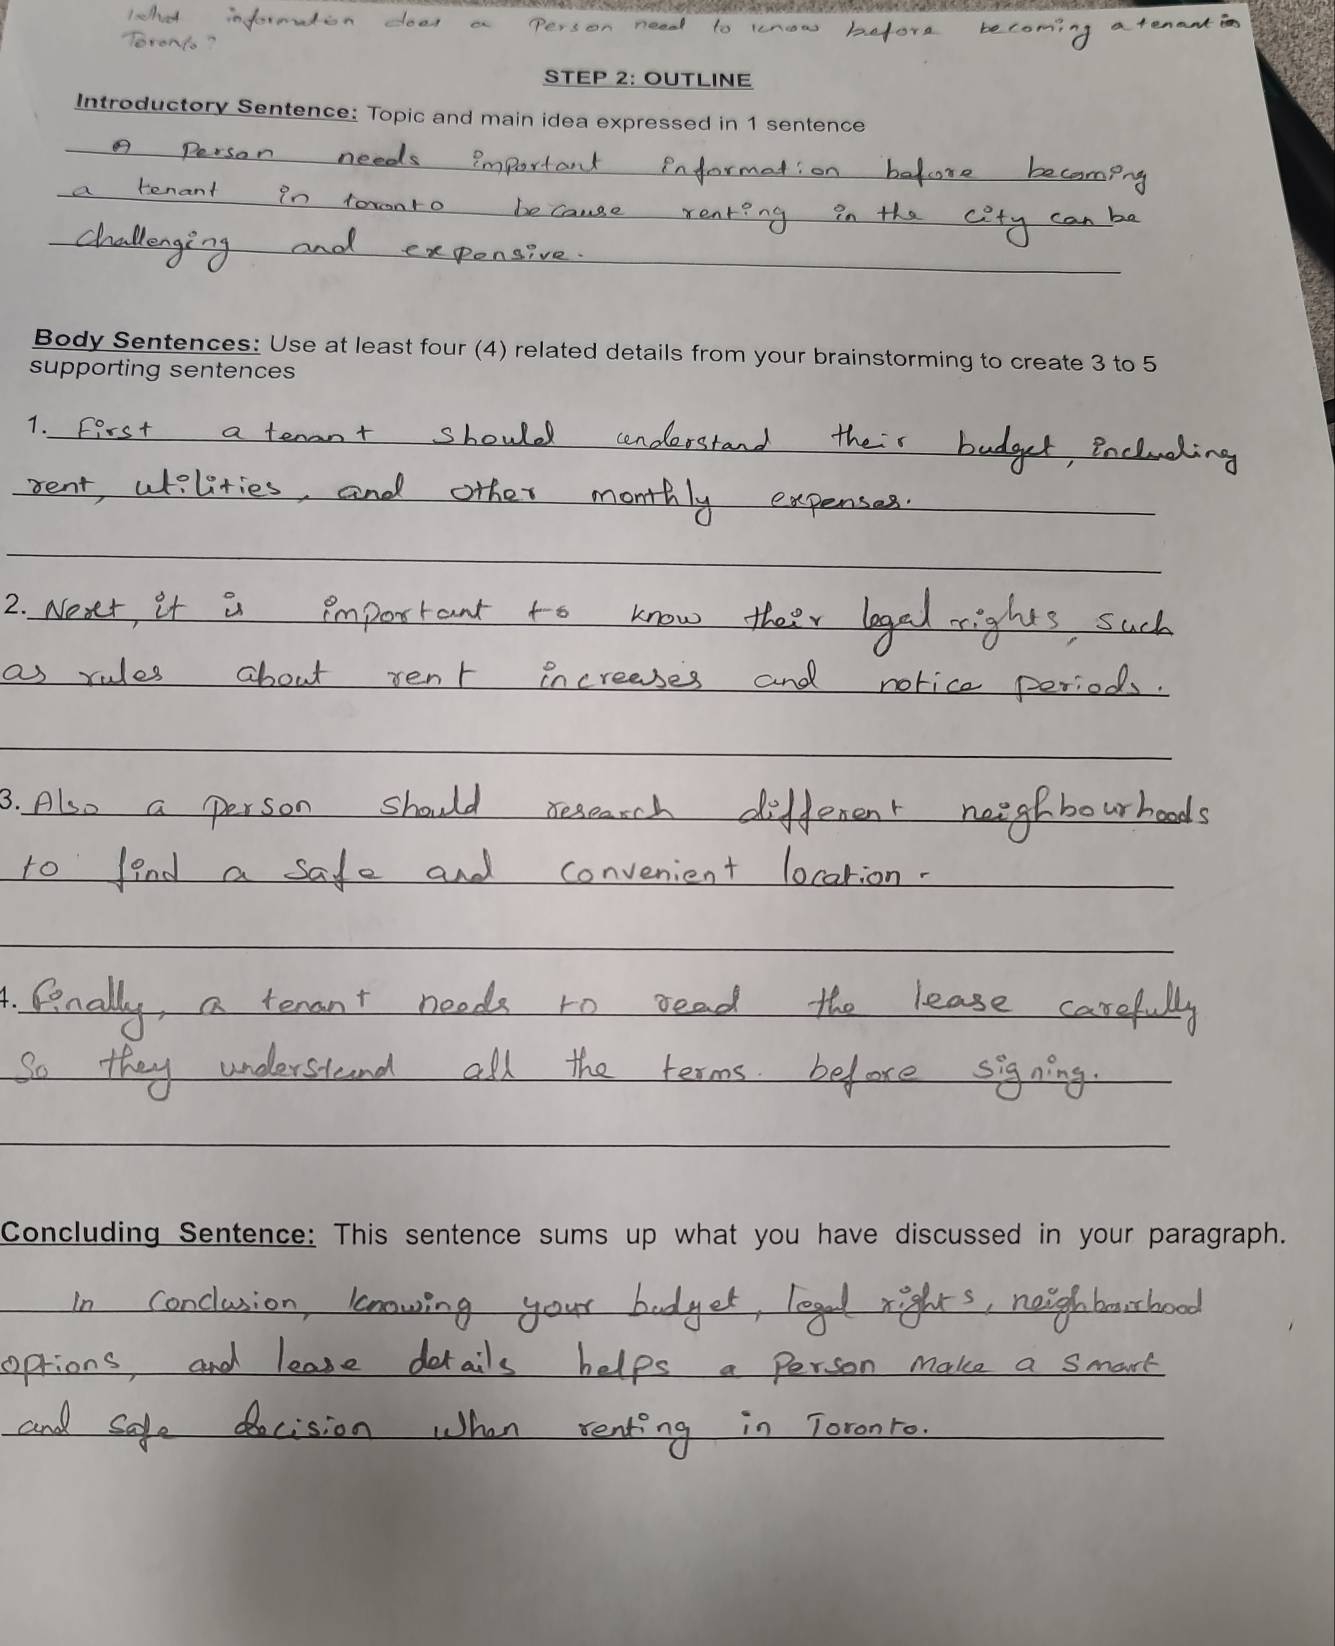 What information does a Person need to know before becoming a tenant in
Toronto?
STEP 2: OUTLINE
Introductory Sentence: Topic and main idea expressed in 1 sentence
A Person needs important information before becoming
a tenant in toronto because renting in the city can be
challenging and expensive.
Body Sentences: Use at least four (4) related details from your brainstorming to create 3 to 5
supporting sentences
1. First a tenant should understand their budget, including
rent, utilities, and other monthly expenses.
2. Next, it is important to know their legal rights, such
as rules about rent increases and notice periods.
3. Also a person should research different neighbourhoods
to find a safe and convenient location.
4. Finally, a tenant needs to read the lease carefully
So they understand all the terms. before signing.
Concluding Sentence: This sentence sums up what you have discussed in your paragraph.
In conclusion, knowing your budget, legal rights, neighbourhood
options, and lease details helps a Person make a smart
and safe decision when renting in Toronto.